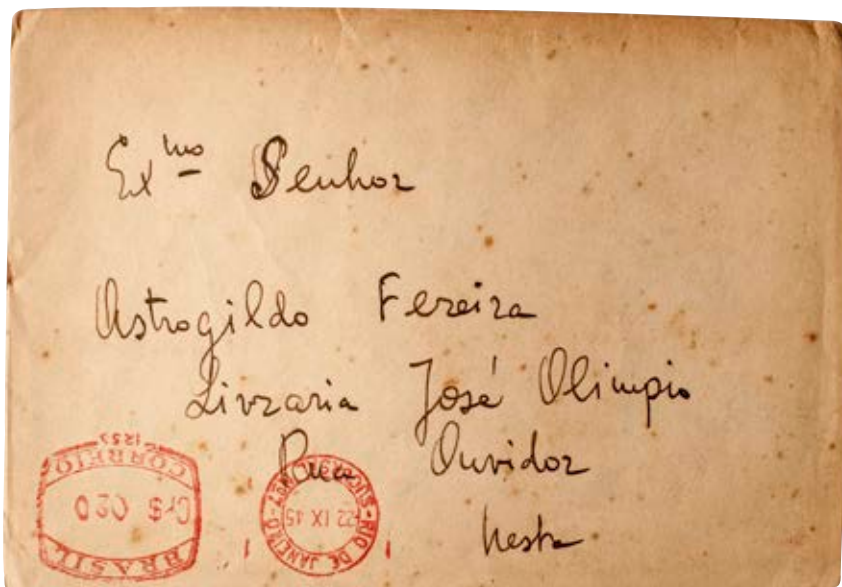 Exmo Senhor
Astrogildo Fereira
Livraria José Olimpio
Rua Ouvidor
Nesta
BRASIL
Cr$ 020
CORREIO
RIO DE JANEIRO
22 IX 45